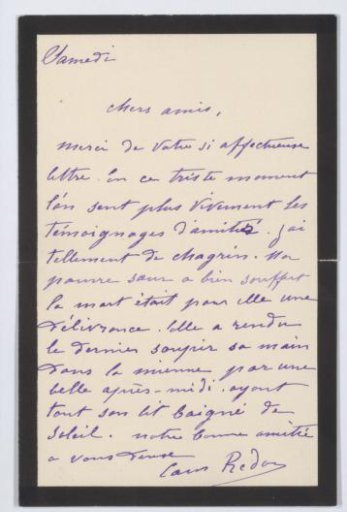 Samedi
chers amis,
merci de votre si affectueuse
lettre. En ce triste moment
l'on sent plus vivement les
témoignages d'amitié. J'ai
tellement de chagrin. Ma
pauvre sœur a bien souffert
la mort était pour elle une
délivrance. Elle a rendu
le dernier soupir sa main
dans la mienne par une
belle après-midi. ayant
tout son lit baigné de
soleil. notre bonne amitié
a vous deux
Redon